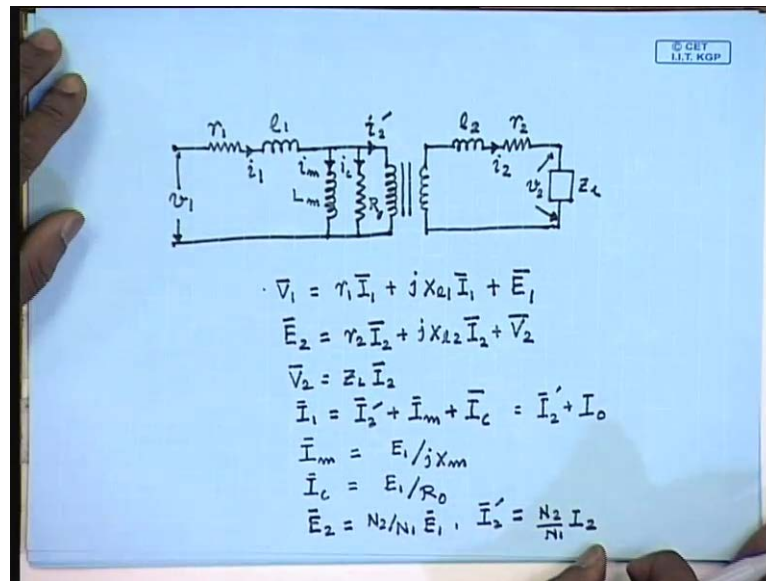 © CET
I.I.T. KGP
r₁ l₁ i₂′ l₂ r₂
i₁ iₘ i_c i₂
v₁ Lₘ R v₂ Z_L
V̄₁ = r₁ Ī₁ + j x_l1 Ī₁ + Ē₁
Ē₂ = r₂ Ī₂ + j x_l2 Ī₂ + V̄₂
V̄₂ = Z_L Ī₂
Ī₁ = Ī₂′ + Īₘ + Ī_c = Ī₂′ + I₀
Īₘ = E₁/jxₘ
Ī_c = E₁/R₀
Ē₂ = N₂/N₁ Ē₁, Ī₂′ = N₂/N₁ I₂